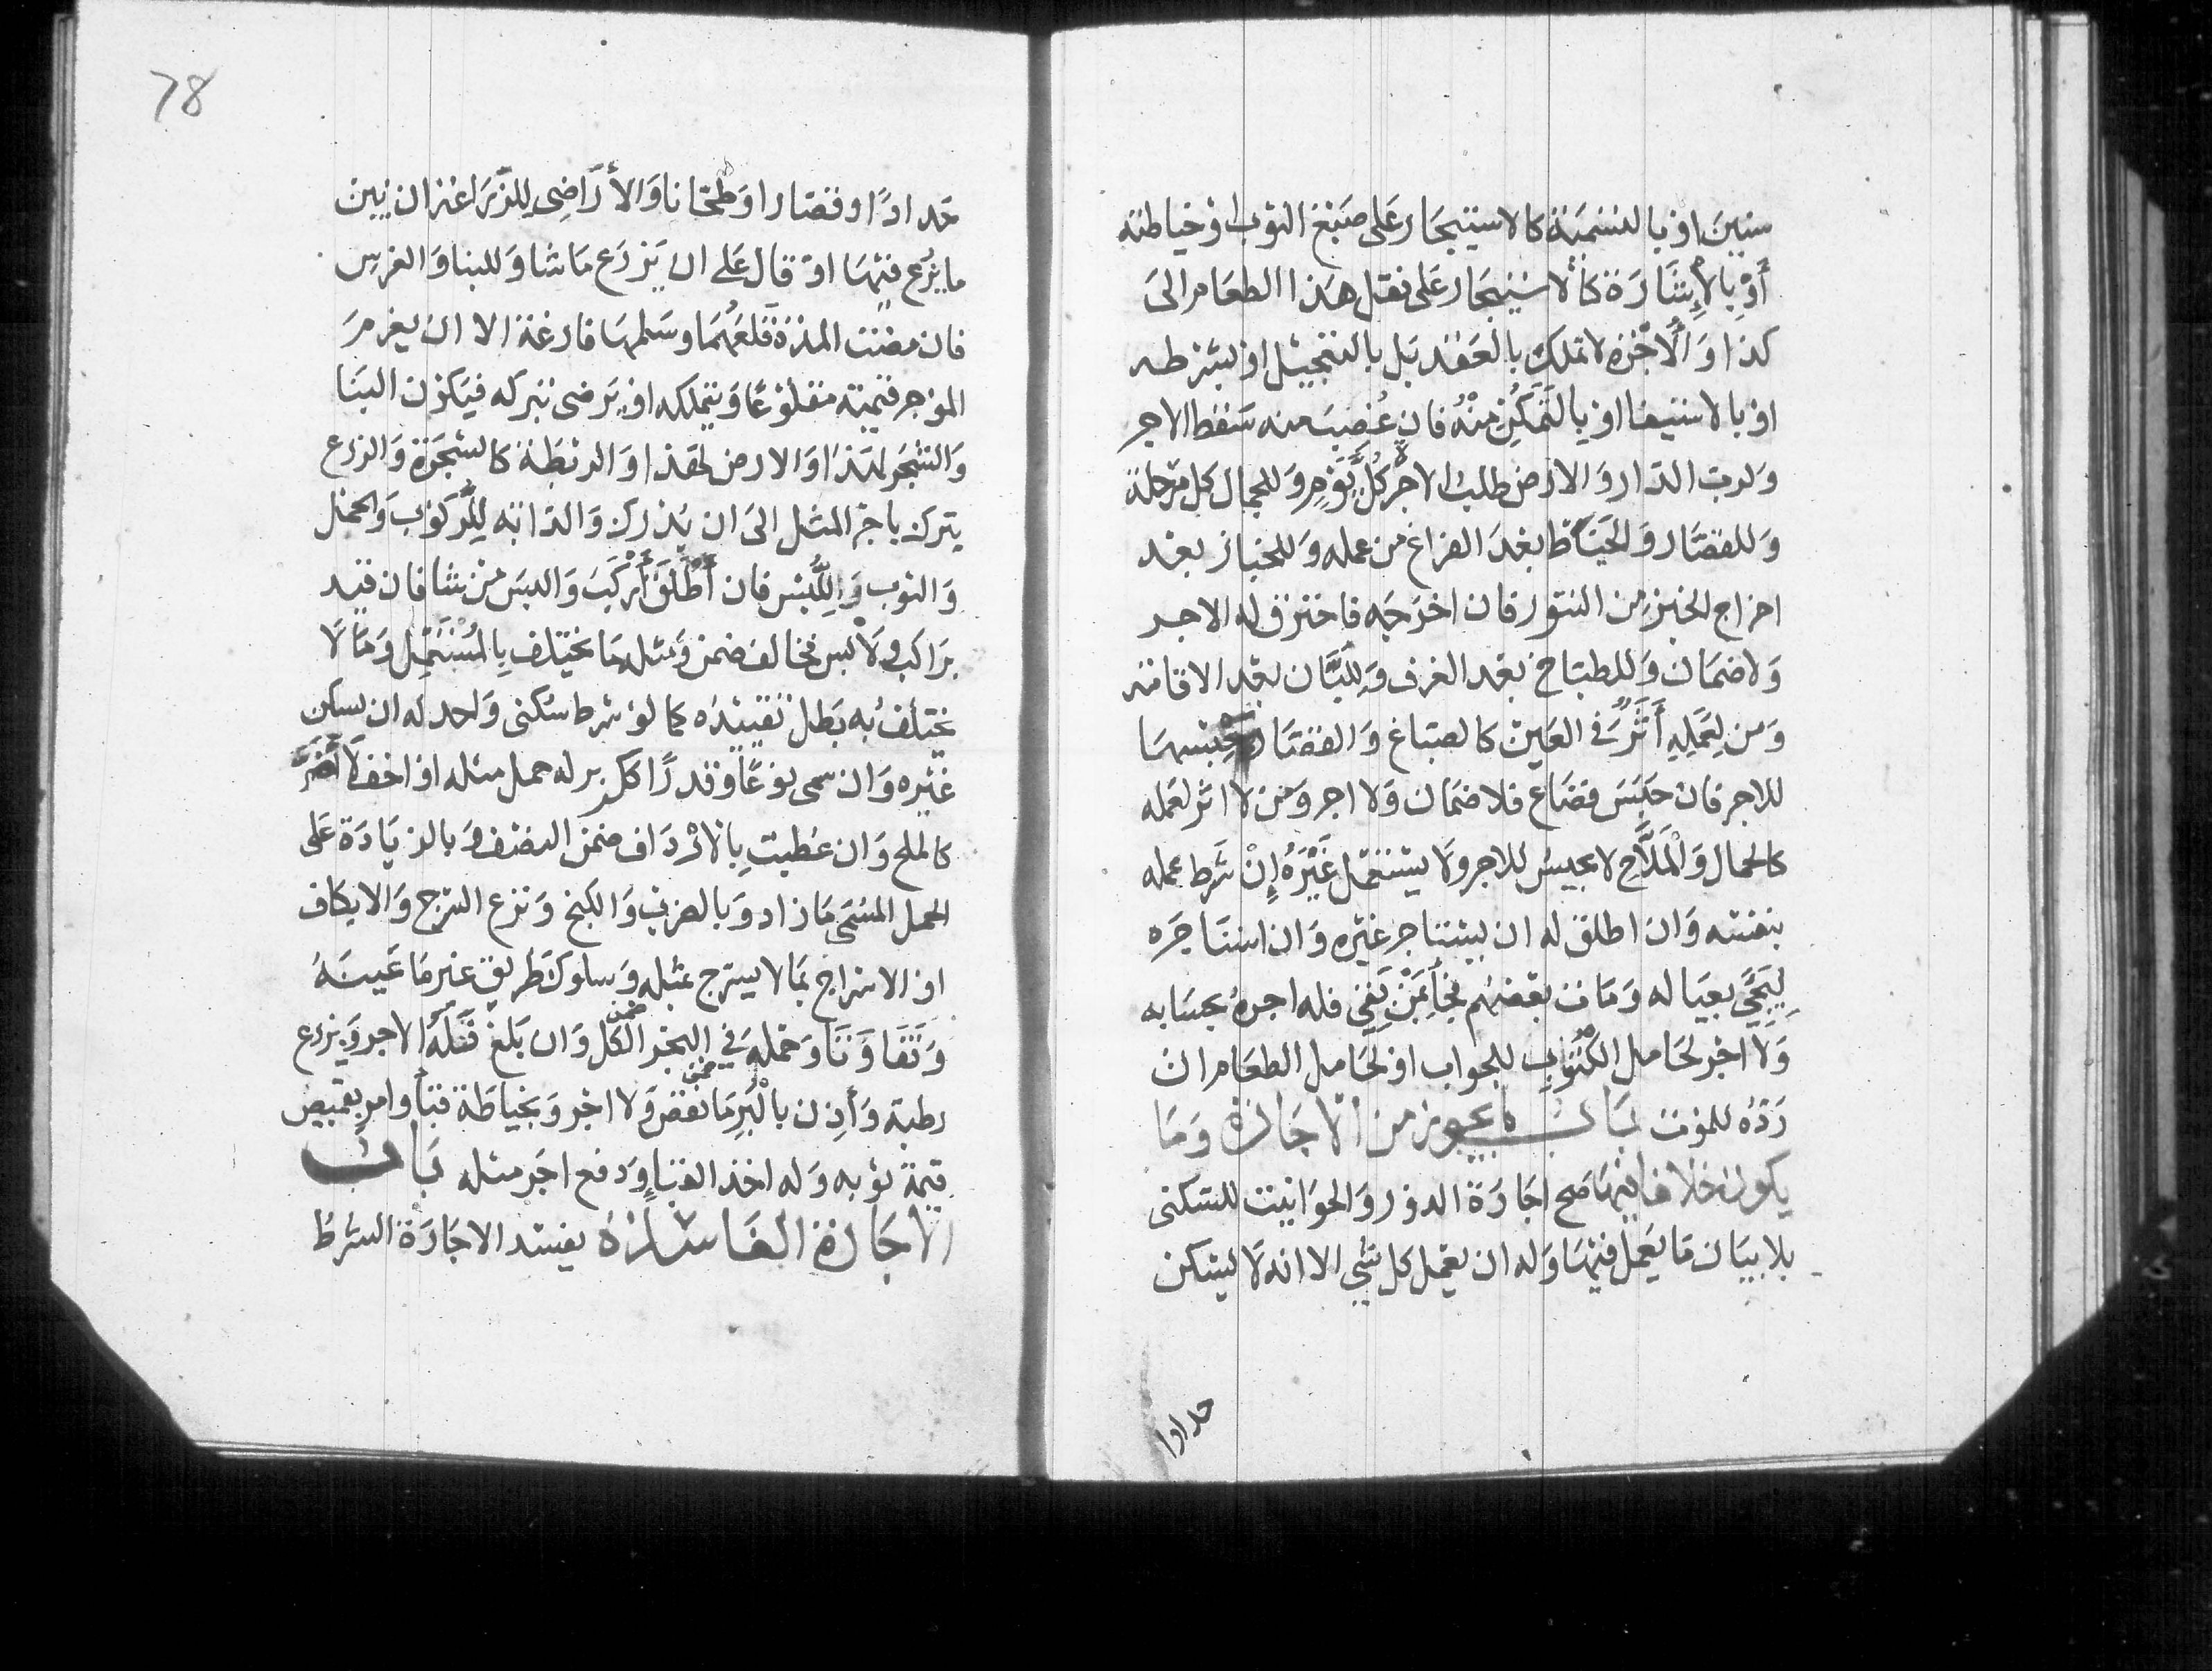 سنين او بالتسمية كالاستيجار على صبغ الثوب او خياطته
أَوْ بِالإِشَارَة كالاستيجار على نقل هذا الطعام الى
كذا وَالأُجْرة لا تملك بالعقد بل بالتعجيل او بشرطه
او بالاستيفا او بالتَمَكُّنِ مِنْهُ فان غُصِبَ منه سَقط الاجر
وَلرب الدار وَالارض طلب الاجر كُلَّ يَوْمٍ وَللجمال كل مرحلة
وَللقصّار وَالخيّاط بعْدَ الفراغ من عمله وَللخباز بعد
اخراج الخبز من التنور فان اخرجَه فاحترق له الاجر
وَلا ضمَان وَللطباخ بعد الغرف وَلِلَّبَّان بعد الاقامة
وَمن لِعَمَلِهِ أَثَرٌ في العَين كالصباغ وَالقصّار يحبسهَا
للاجر فان حَبَسَ فضَاع فلا ضمَان وَلا اجر وَمن لا اثر لعَمله
كالحمال وَالْمَلَّاح لا يحبس للاجر وَلا يستعمل غَيْرَهُ إِنْ شَرط عمله
بنفسه وَان اطلق له ان يستاجر غيره وَان استَاجَره
لِيَجِيَ بعيَاله وَمَات بعضهُم فجَأ بِمَنْ بَقِيَ فله اجره بحسَابه
وَلا اجر لحامل الكتَاب للجواب او لحامل الطعَام ان
رَدَّه للموت بَابُ مَا يجوز من الاجَارة وَمَا
يكون خلافا فيهَا صح اجَارَة الدور وَالحوَانيت للسكنى
بلا بيَان مَا يعمل فيهَا وَله ان يعمل كل شي الا انه لا يسكن
حدادا
78
حَدادًا او قصّارا او طحّانا وَالأَرَاضِي لِلزِّرَاعَة ان بيّن
ما يزرع فيهَا او قال عَلى ان يَزرَع مَا شا وَللبنا وَالغرس
فان مضت المدة قلعَهُمَا وسَلمهَا فارغة الا ان يغرمَ
الموجر قيمته مقلوعًا وَيتملكه او يَرضى بتركه فيَكون البنَا
وَالشجر لهَذا وَالارض لهَذا وَالرطبة كالشجَرة وَالزرع
يترك باجر المثل الى ان يُدرك وَالدابة لِلرُّكوب وَالحمل
وَالثوب وَلِلُّبْسِ فان أَطْلَقَ أَرْكَبَ وَالبسَ مَنْ شا فان قيد
برَاكب وَلابس فخالف ضمن وَمثله مَا يختلف بِالْمُسْتَعْمِل وَمَا لا
يختلف به بَطل تقييدُه كما لو شرط سُكنى وَاحد له ان يسكن
غيره وَان سمى نوعًا وَقدرًا ككر بر له حمل مثله او اخف لا أَضَرَّ
كالملح وَان عطبت بِالارْدَاف ضمن النصف وَبالزيَادَة عَلى
الحمل المسَمى مَا زاد وَبالضرب وَالكبح وَنزع السّرج وَالايكاف
او الاسراج بمَا لا يسرج بمثله وَسلوك طريق غير مَا عَينَهُ
وَتفَاوَتَا وَحمله في البَحْر الكل وَان بَلغ فَلَهُ الاجر وَبزرع
ضمن
رطبة وَأَذِن بِالْبُرِّ مَا نقص وَلا اجر وَبخياطَة قبَأ وامر بقميص
ضمن
قيمة ثوبه وَله اخذ القبَا وَدفع اجر مثله بَابُ
الاجَارة الفَاسدَة يفسد الاجَارَة الشرطُ